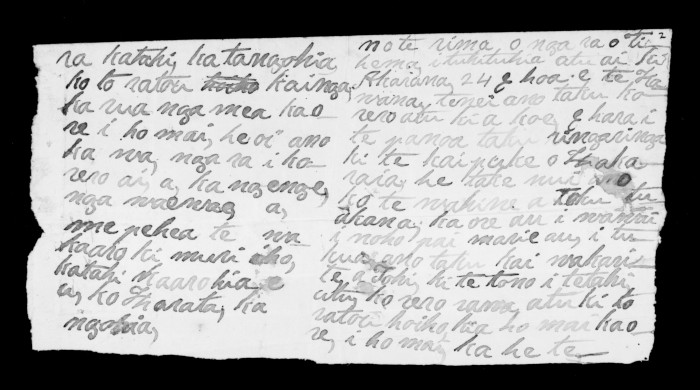 ra katahi, ka tangohia
ko to ratou kainga,
ka wa nga mea kao
re i ho mai, he oi ano
ka wa, nga ra i ko
rero ai, a, ka ngenge,
nga waewae, a,
me pehea te wa
kaaro ki muri iho,
katahi kaarohia, e
u, ko Marata, ka
ngohia,
2
no te rima o nga ra o Ti
hema i tuhituhia atu ai ki
Akaiana, 24 E hoa e te Ka
wana, tenei ano taku ko
rero atu ki a koe, E hara i
te panga taku ringaringa
ki te kaipuke o Haka
raia, he take nui ano
ko te wahine a taku tu
akana, ka ore au i
i noho pai marie au, i tu
kua ano taku kai wakari
te a Tohi, ki te tono i tetahi,
utu, ko rero rawa atu ki to
ratou hoiho kia ho mai kao
re, i ho mai, ka he te